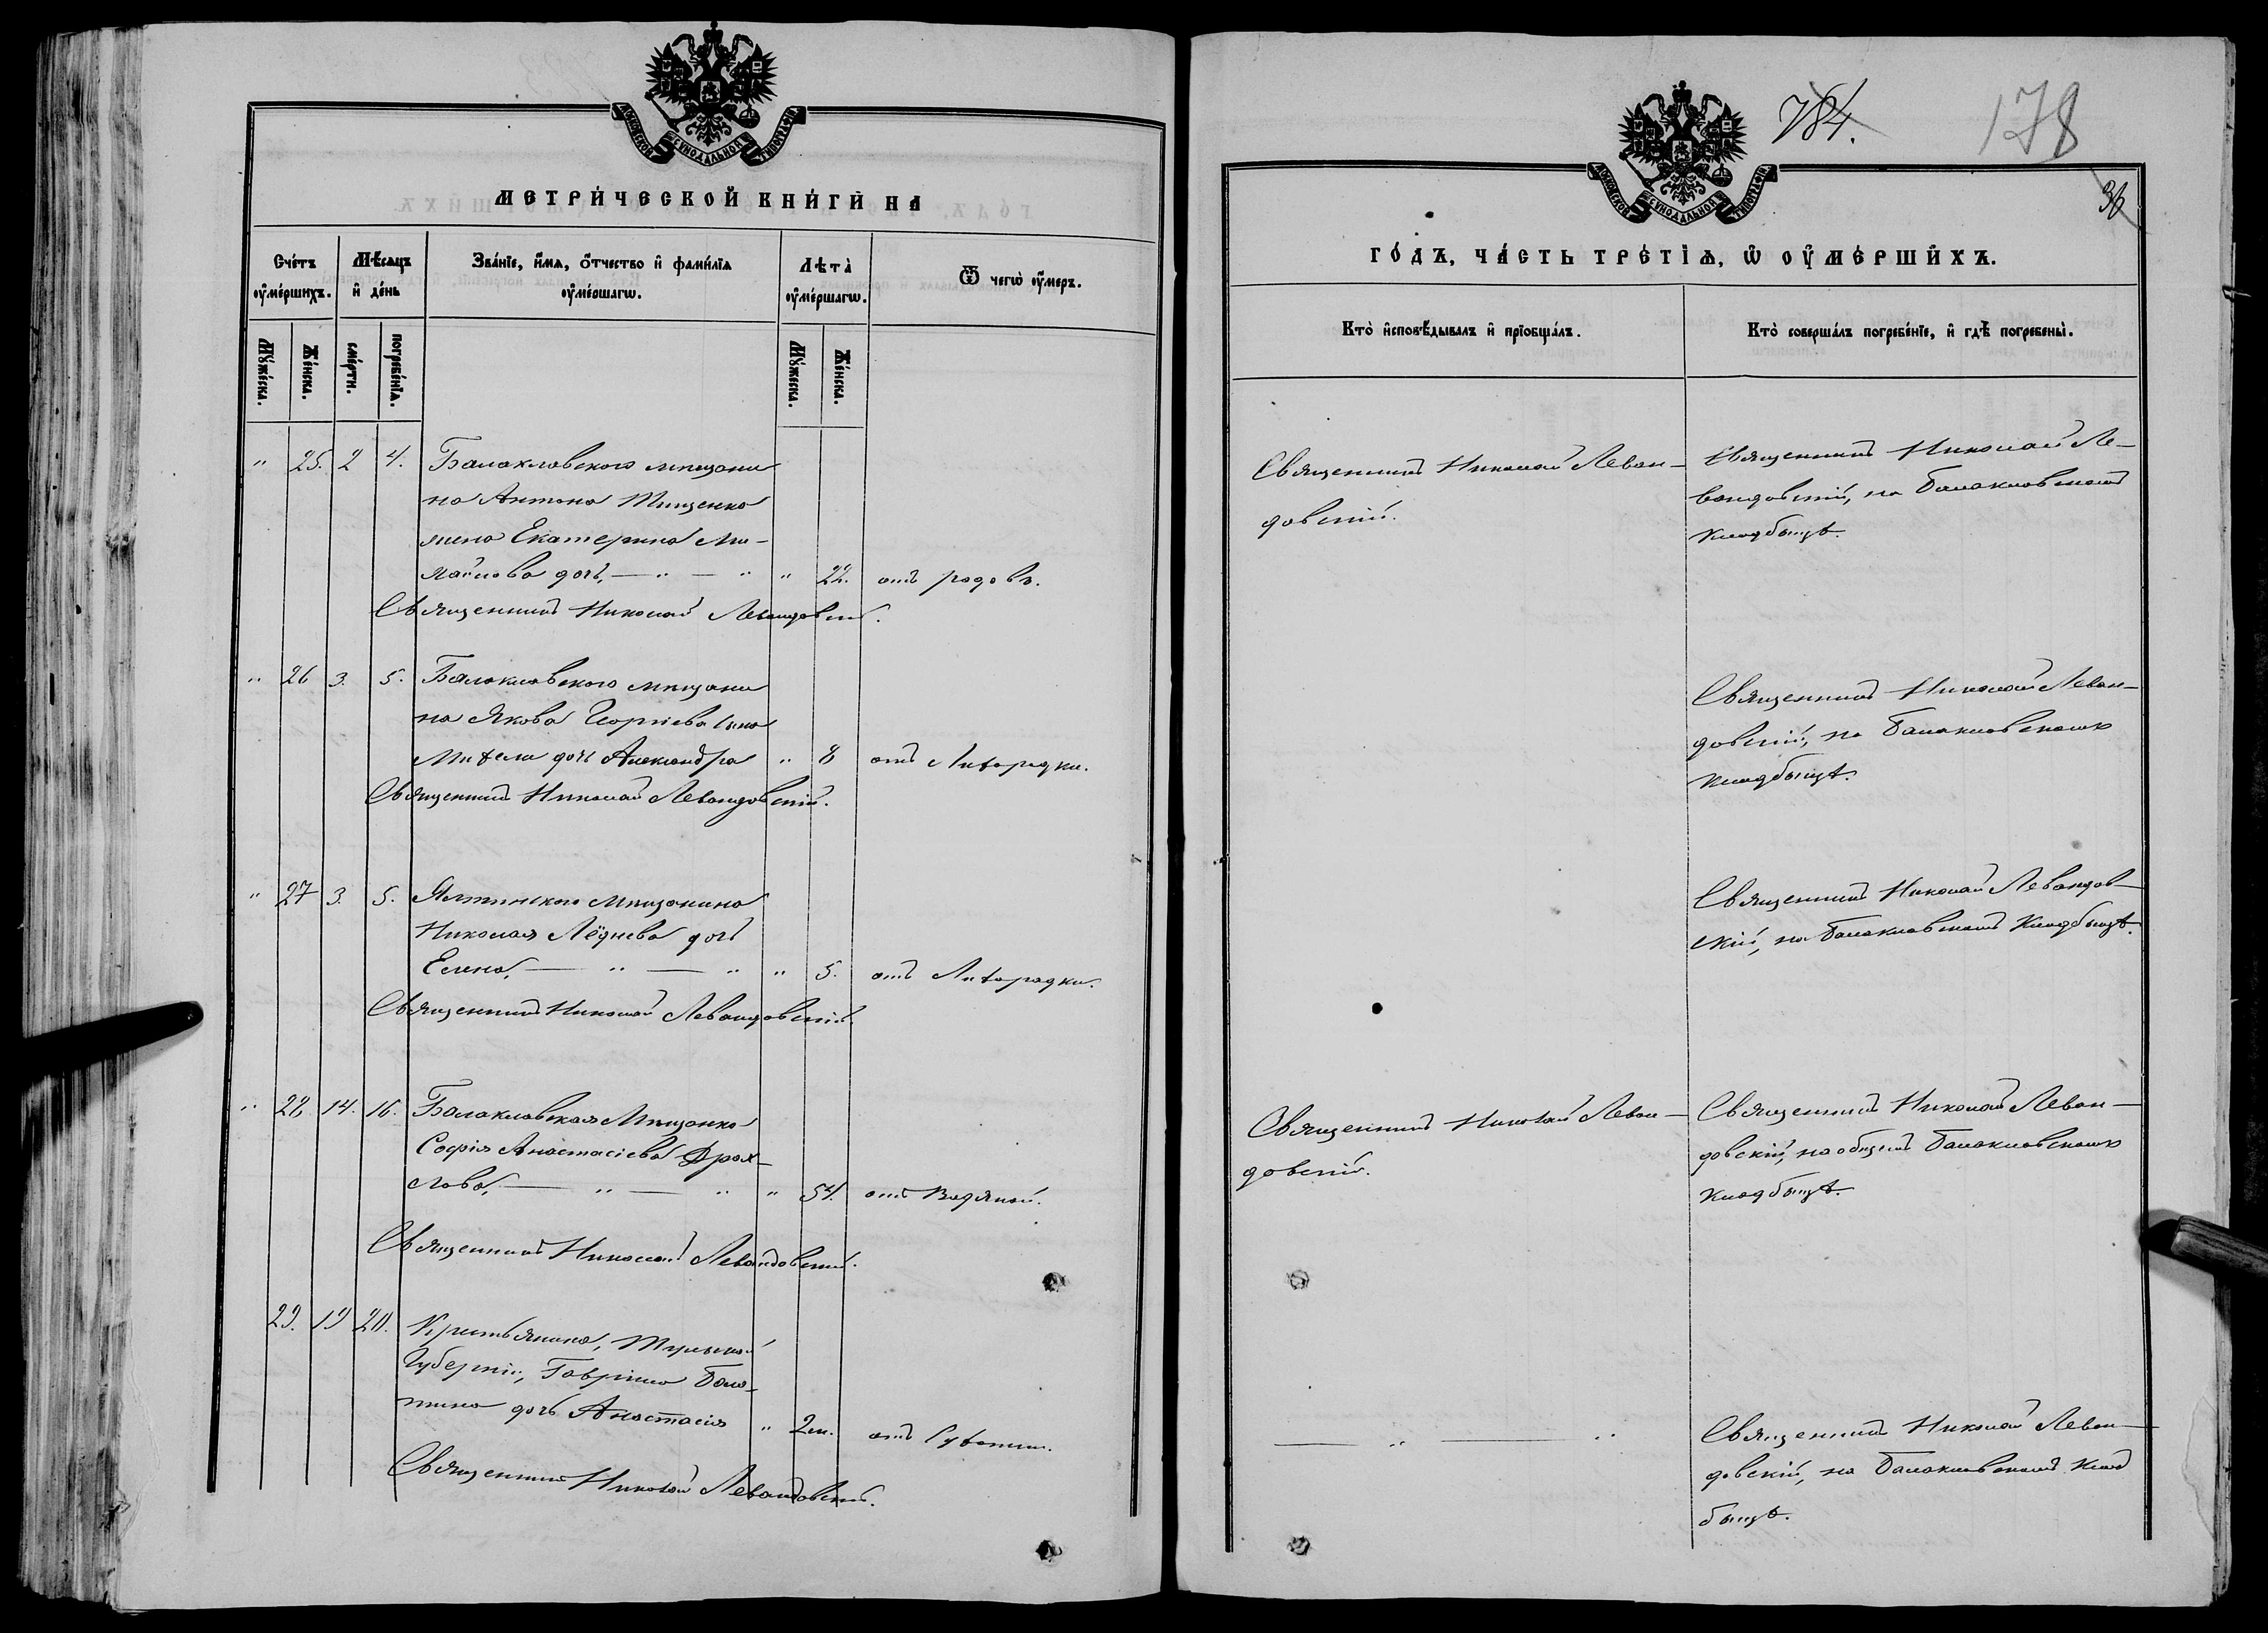 МОСКОВСКОЙ СѴНОДАЛЬНОЙ ТИПОГРАФІИ
МЕТРИ́ЧЕСКОЙ КНИ́ГИ НА
Сче́тъ оу҆ме́ршихъ.
Мѣ́сяцъ и҆ де́нь
Зва́нїе, и҆́мѧ, ѻ҆́тчество и҆ фами́лїѧ оу҆ме́ршагѡ.
Лѣ́та̀ оу҆ме́ршагѡ.
Ѿ чегѡ̀ оу҆́меръ.
Мꙋ́жеска.
Же́нска.
сме́рти.
погребе́нїѧ.
Мꙋ́жеска.
Же́нска.
" 25. 2 4. Балаклавского мѣщани
на Антона Тищенко
жена Екатерина Ми-
хайлова дочь, — " — " " 22. отъ родовъ.
Священникъ Николай Левандовскій.
" 26 3. 5. Балаклавского мѣщани
на Якова Георгіева сына
дочь Александра " 8 отъ Лихорадки.
Священникъ Николай Левандовскій.
" 27 3. 5. Ялтинского мѣщанина
Николая Лёднева дочь
Елена, — " — " " 5. отъ Лихорадки.
Священникъ Николай Левандовскій.
" 28. 14. 16. Балаклавская Мѣщанка
Софія Анастасіева Драх-
лова, — " — " " 54. отъ Водяной.
Священникъ Николай Левандовскій.
29. 19 20. Крестьянина, Тульской
Губерніи, Гавріила Бала-
шина дочь Анастасія " 2 м. отъ Сухотки.
Священникъ Николай Левандовскій.
184.
178
36
МОСКОВСКОЙ СѴНОДАЛЬНОЙ ТИПОГРАФІИ
ГО́ДЪ, ЧА́СТЬ ТРЕ́ТЇѦ, Ѡ҆ ОУ҆МЕ́РШИХЪ.
Кто̀ и҆сповѣ́дывалъ и҆ прїобща́лъ.
Кто̀ соверша́лъ погребе́нїе, и҆ гдѣ̀ погребены̀.
Священникъ Николай Леван-
довскій.
Священникъ Николай Ле-
вандовскій, на Балаклавскомъ
кладбищѣ.
Священникъ Николай Леван-
довскій, на Балаклавскомъ
кладбищѣ.
Священникъ Николай Левандов-
скій, на Балаклавскомъ Кладбищѣ.
Священникъ Николай Леван-
довскій.
Священникъ Николай Леван-
довскій, на общемъ Балаклавскомъ
кладбищѣ.
— " — "
Священникъ Николай Леван-
довскій, на Балаклавскомъ клад
бищѣ.